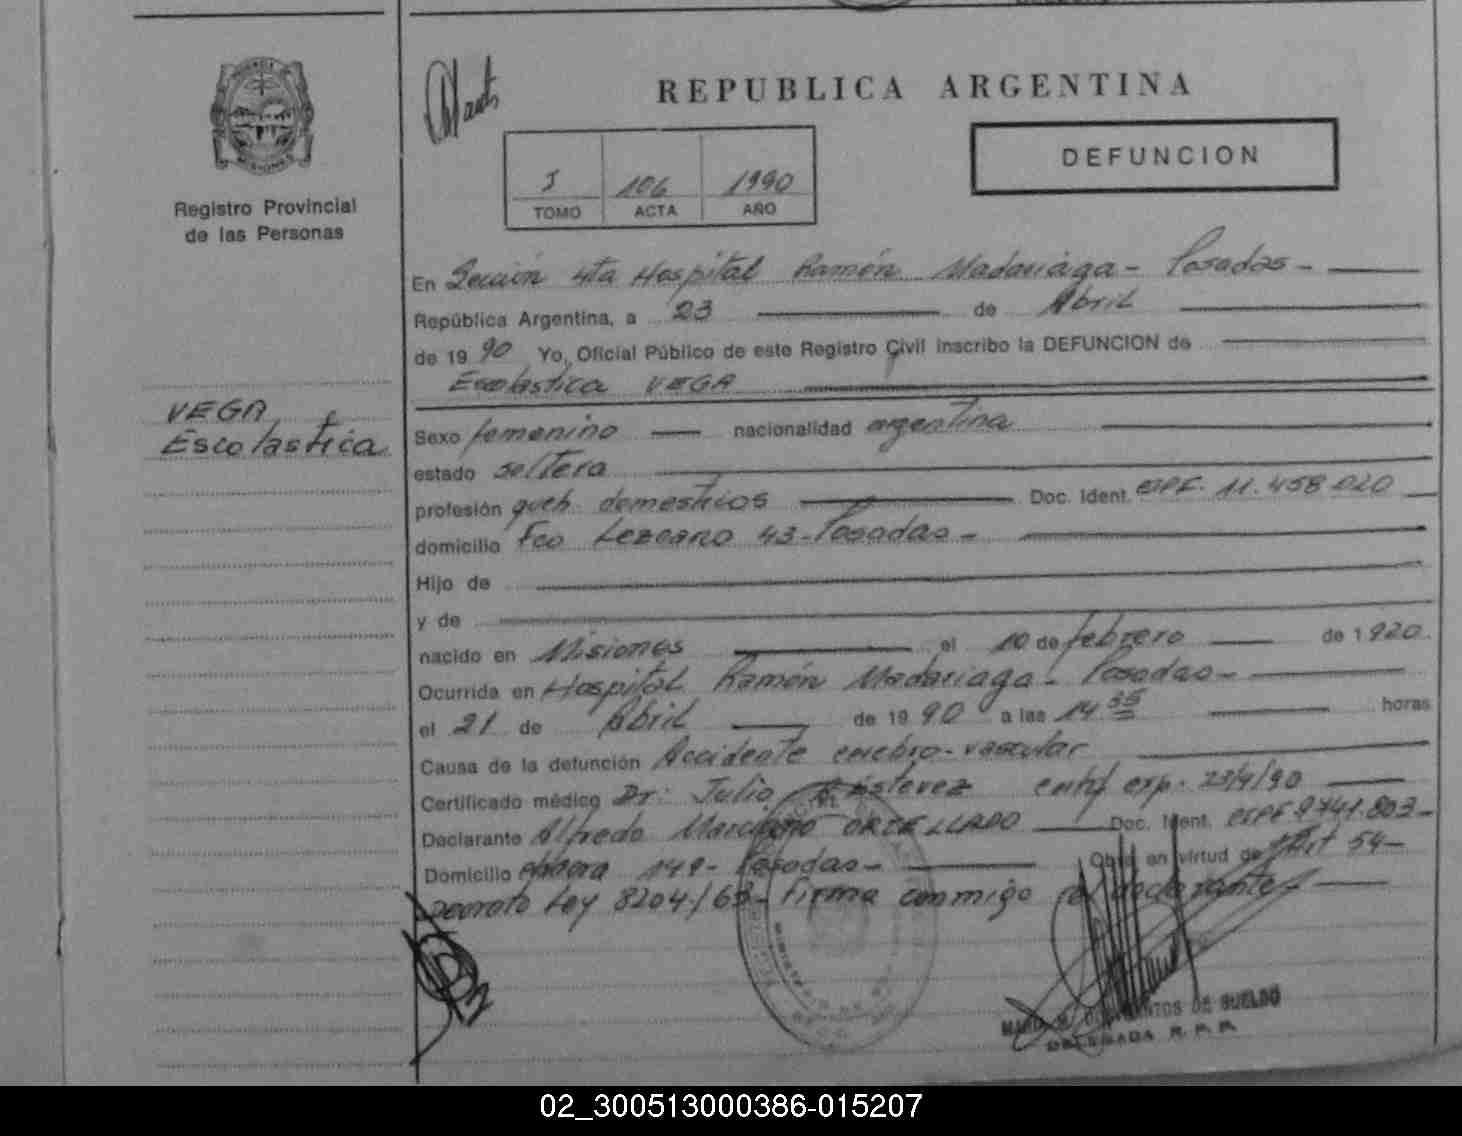 REPUBLICA ARGENTINA
PROVINCIA
MISIONES
Registro Provincial
de las Personas
I 106 1990
TOMO ACTA AÑO
DEFUNCION
En Sección 4ta Hospital Ramón Madariaga - Posadas -
República Argentina, a 23 de Abril
de 1990 Yo, Oficial Público de este Registro Civil inscribo la DEFUNCION de
Escolastica VEGA
VEGA
Escolastica
Sexo femenino nacionalidad argentina
estado soltera
profesión queh. domesticos Doc. Ident. 11.458.020
domicilio Fco Lezcano 43 - Posadas -
Hijo de
y de
nacido en Misiones el 10 de febrero de 1920.
Ocurrida en Hospital Ramón Madariaga - Posadas -
el 21 de Abril de 1990 a las 14 35 horas
Causa de la defunción Accidente cerebro-vascular
Certificado médico Dr: Julio Estevez exp. 23/4/90
Declarante Alfredo ORTELLADO Doc. Ident.
Domicilio 149 - Posadas - Obra en virtud de Art 54 -
Decreto Ley 8204/63 - firma conmigo el declarante
DE SUELDO
DELEGADA R. P. P.
02_300513000386-015207